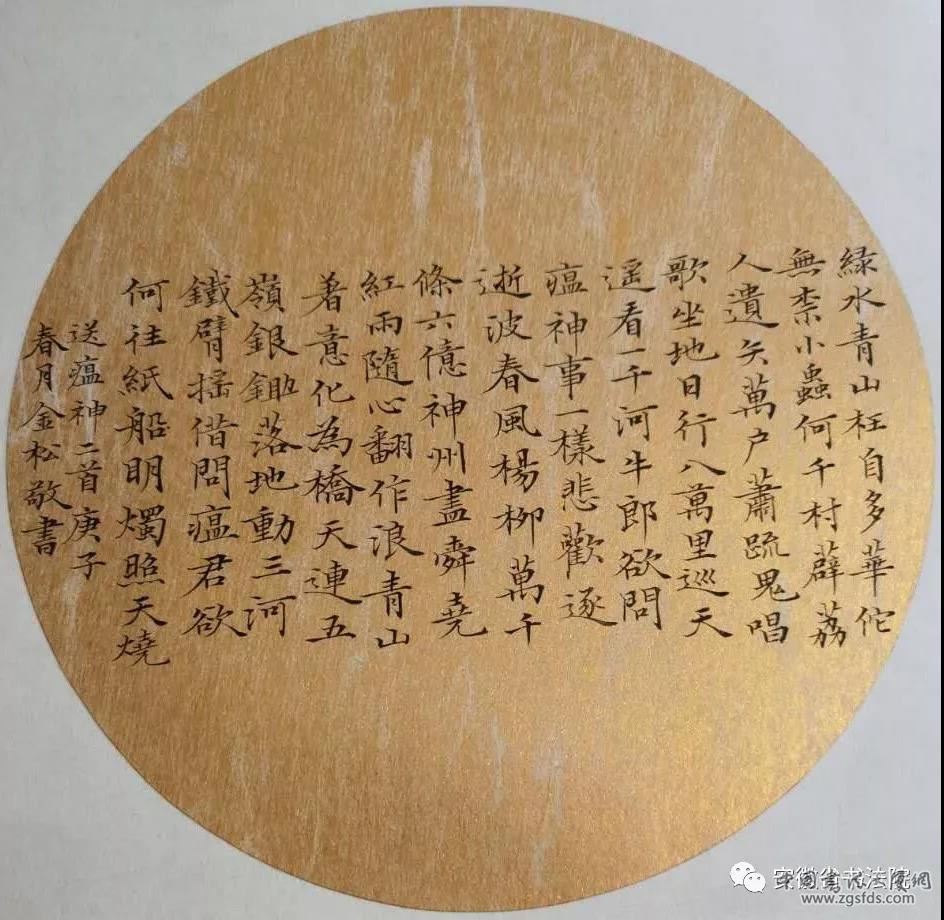 緑水青山枉自多華佗
無柰小蟲何千村薜荔
人遺矢萬户蕭疏鬼唱
歌坐地日行八萬里巡天
遥看一千河牛郎欲問
瘟神事一樣悲歡逐
逝波春風楊柳萬千
條六億神州盡舜堯
紅雨隨心翻作浪青山
著意化為橋天連五
嶺銀鋤落地動三河
鐵臂摇借問瘟君欲
何往紙船明燭照天燒
送瘟神二首庚子
春月金松敬書
安徽省书法院
www.zgsfds.com